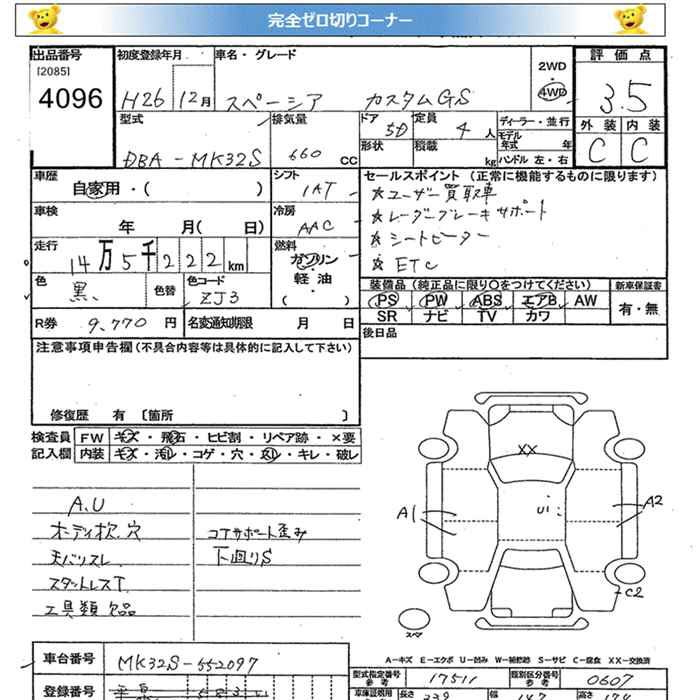 完全ゼロ切りコーナー
出品番号 初度登録年月 車名・グレード 評価点
[2085] 2WD
4096 H26 12月 スペーシア カスタムGS 4WD 3.5
型式 排気量 ドア 5D 定員 4人 ディーラー・並行 外装 内装
DBA-MK32S 660 CC 形状 積載 kg モデル年式 年 C C
ハンドル 左・右
車歴 シフト セールスポイント (正常に機能するものに限ります)
自家用・( ) 1AT ★ユーザー買取車
車検 冷房 ★レーダーブレーキサポート
年 月( 日) AAC ★シートヒーター
走行 燃料 ★ETC
14万5千222km ガソリン
色 色替 色コード 軽油 装備品 (純正品に限り○をつけてください) 新車保証書
黒 ZJ3 ( ) PS PW ABS エアB AW 有・無
R券 9,770円 名変通知期限 月 日 SR ナビ TV カワ
注意事項申告欄(不具合内容等は具体的に記入して下さい) 後日品
修復歴 有 〔箇所 〕
検査員 FW キズ・飛石・ヒビ割・リペア跡・×要
記入欄 内装 キズ・汚レ・コゲ・穴・スレ・キレ・破レ
XX
A.U
A1 U1 A2
コアサポート歪み
天バリスレ 下廻りS
スタットレスT
工具類欠品
C2
スペア
A-キズ E-エクボ U-凹み W-補修跡 S-サビ C-腐食 XX-交換済
車台番号 MK32S-552097
型式指定番号 参考 17511 類別区分番号 参考 0607
登録番号
車庫証明用 長さ 339